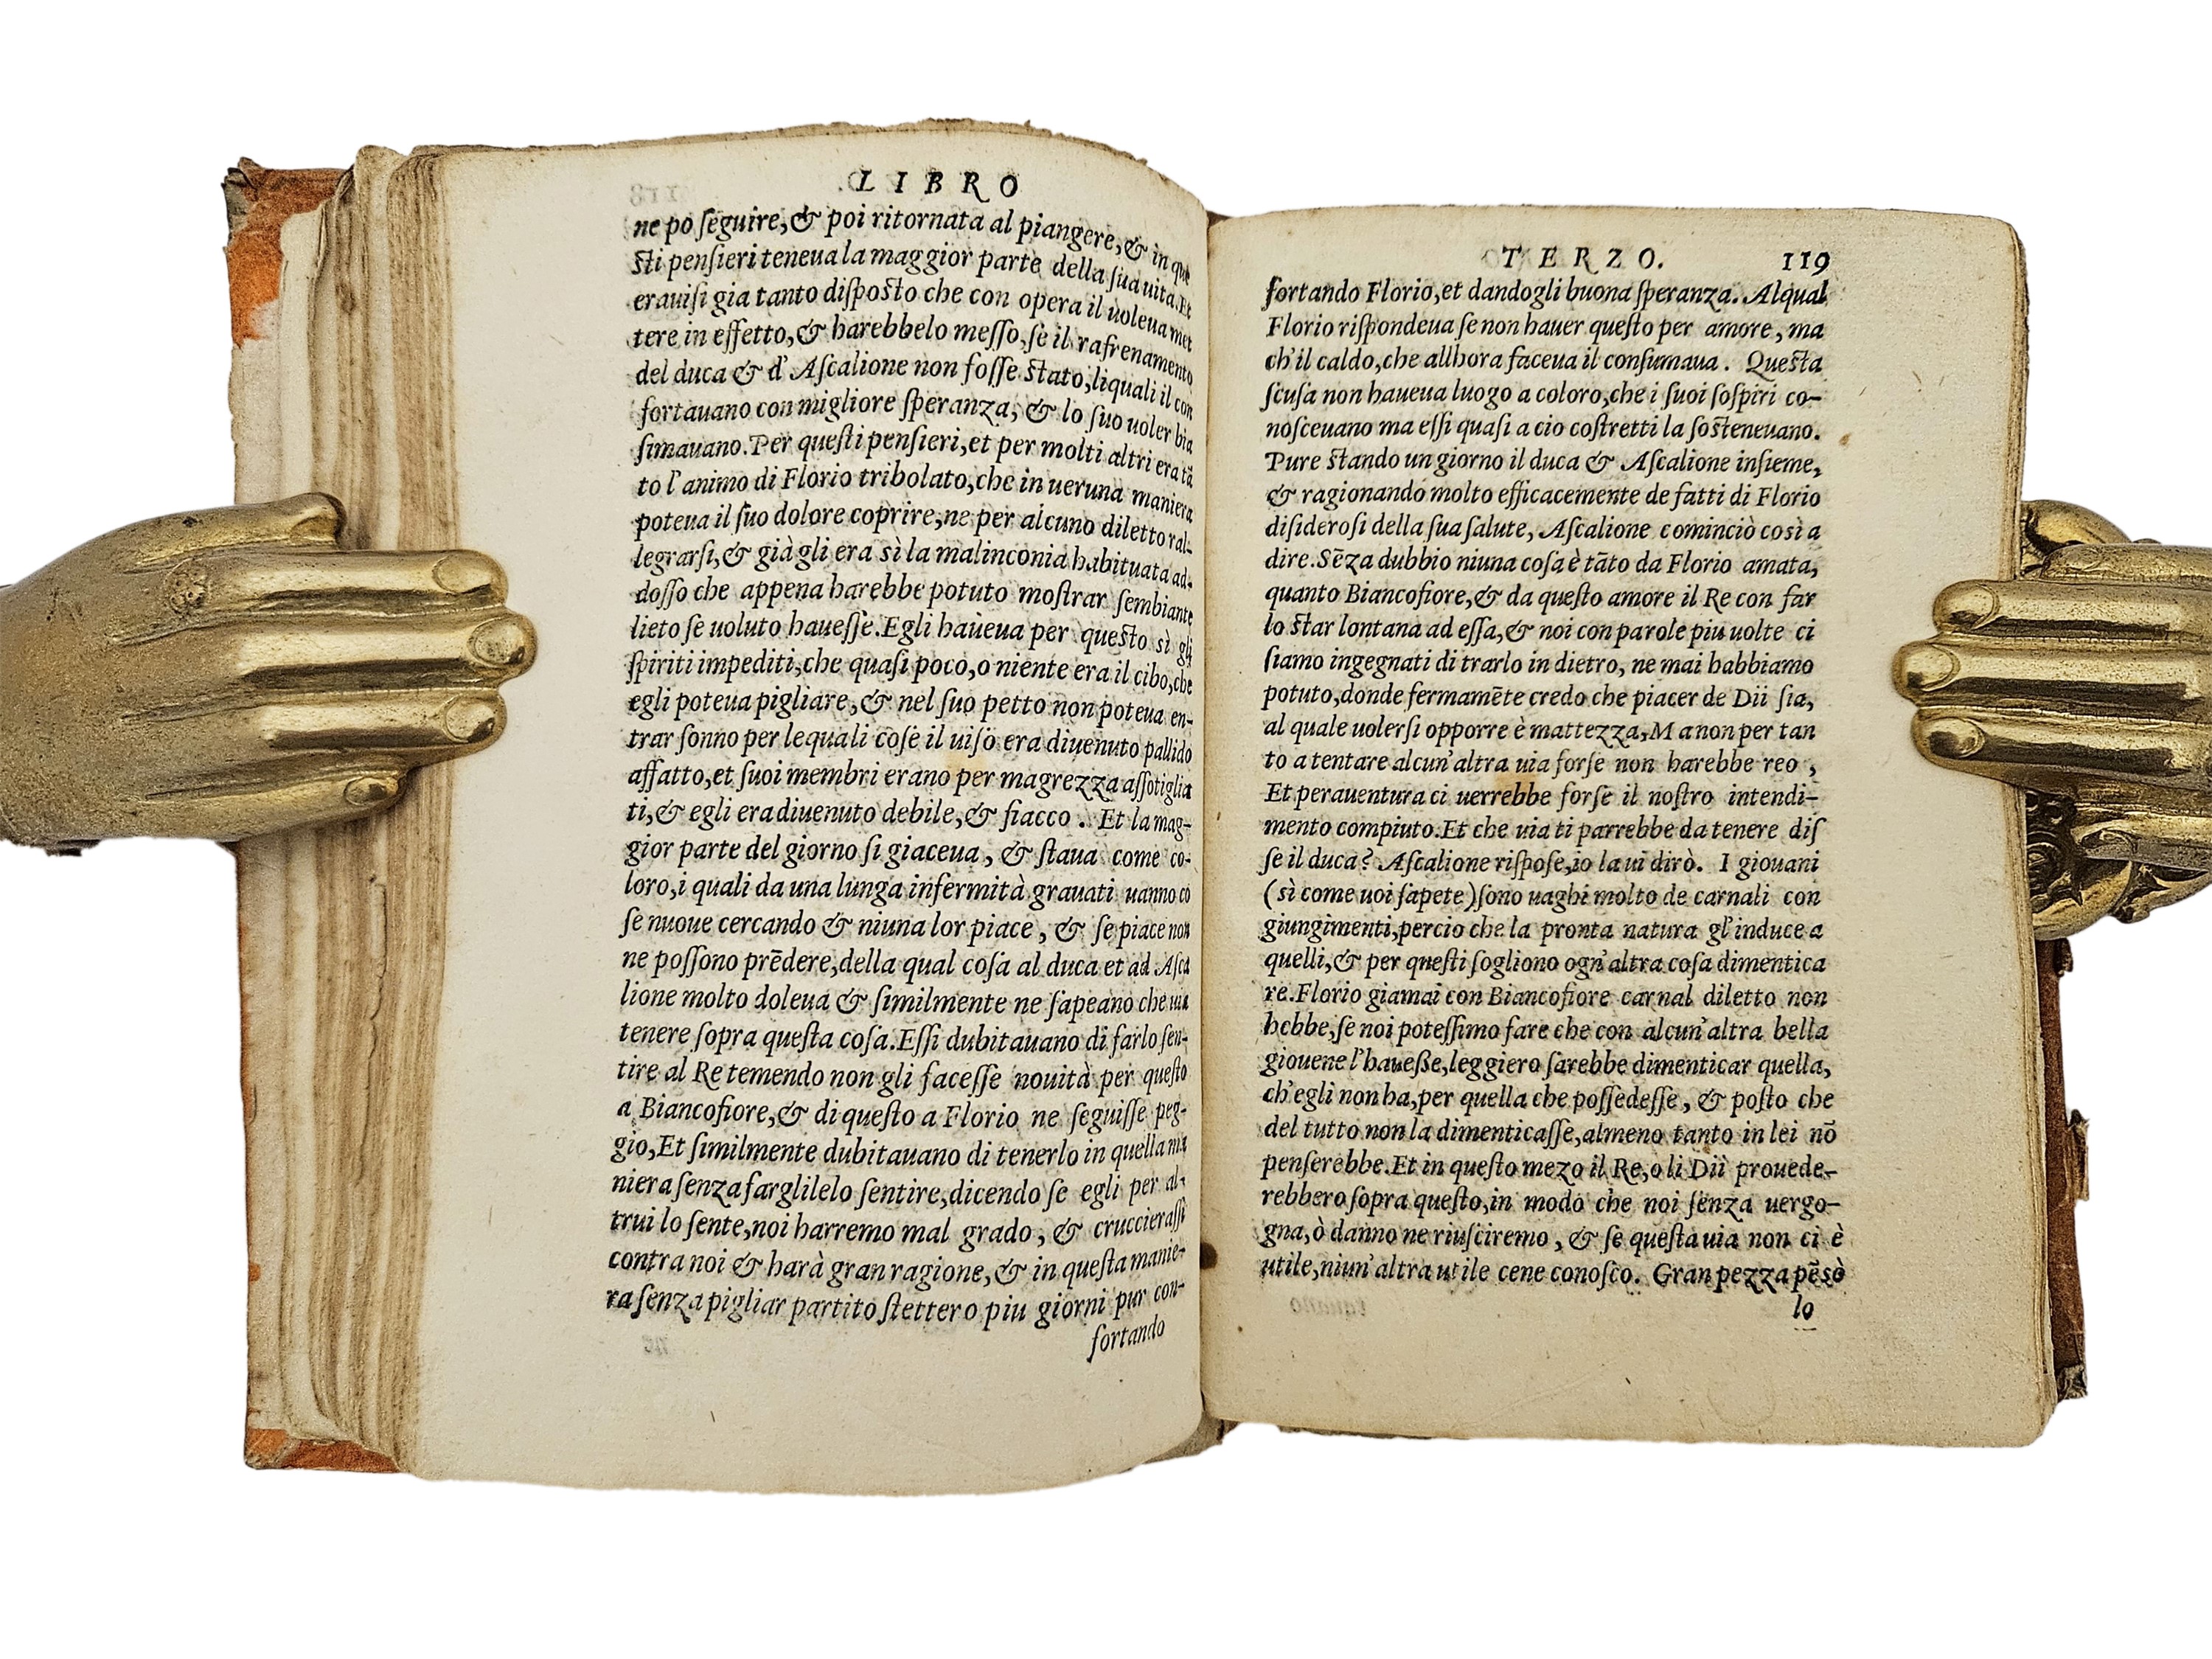 LIBRO
ne po ſeguire, & poi ritornata al piangere, & in que
ſti penſieri teneua la maggior parte della ſua uita. Et
erauiſi gia tanto diſpoſto che con opera il uoleua met
tere in effetto, & harebbelo meſſo, ſe il rafrenamento
del duca & d' Aſcalione non foſſe ſtato, liquali il con
fortauano con migliore ſperanza, & lo ſuo uoler bia
ſimauano. Per queſti penſieri, et per molti altri era tã
to l'animo di Florio tribolato, che in ueruna maniera
poteua il ſuo dolore coprire, ne per alcuno diletto ral-
legrarſi, & già gli era sì la malinconia habituata ad-
doſſo che appena harebbe potuto moſtrar ſembiante
lieto ſe uoluto haueſſe. Egli haueua per queſto sì gli
ſpiriti impediti, che quaſi poco, o niente era il cibo, che
egli poteua pigliare, & nel ſuo petto non poteua en-
trar ſonno per lequali coſe il uiſo era diuenuto pallido
affatto, et ſuoi membri erano per magrezza aſſotiglia
ti, & egli era diuenuto debile, & fiacco. Et la mag-
gior parte del giorno ſi giaceua, & ſtaua come co-
loro, i quali da una lunga infermità grauati uanno co
ſe nuoue cercando & niuna lor piace, & ſe piace non
ne poſſono prẽdere, della qual coſa al duca et ad Aſca
lione molto doleua & ſimilmente ne ſapeano che uia
tenere ſopra queſta coſa. Eſſi dubitauano di farlo ſen-
tire al Re temendo non gli faceſſe nouità per queſto
a Biancofiore, & di queſto a Florio ne ſeguiſſe peg-
gio, Et ſimilmente dubitauano di tenerlo in quella ma
niera ſenza farglilelo ſentire, dicendo ſe egli per al-
trui lo ſente, noi harremo mal grado, & cruccieraſſi
contra noi & harà gran ragione, & in queſta manie-
ra ſenza pigliar partito ſtettero piu giorni pur con-
fortando
TERZO. 119
fortando Florio, et dandogli buona ſperanza. Alqual
Florio riſpondeua ſe non hauer queſto per amore, ma
ch'il caldo, che allhora faceua il conſumaua. Queſta
ſcuſa non haueua luogo a coloro, che i ſuoi ſoſpiri co-
noſceuano ma eſſi quaſi a cio coſtretti la ſoſteneuano.
Pure ſtando un giorno il duca & Aſcalione inſieme,
& ragionando molto efficacemente de fatti di Florio
diſideroſi della ſua ſalute, Aſcalione cominciò così a
dire. Sẽza dubbio niuna coſa è tãto da Florio amata,
quanto Biancofiore, & da queſto amore il Re con far
lo ſtar lontana ad eſſa, & noi con parole piu uolte ci
ſiamo ingegnati di trarlo in dietro, ne mai habbiamo
potuto, donde fermamẽte credo che piacer de Dii ſia,
al quale uolerſi opporre è mattezza, Ma non per tan
to a tentare alcun'altra uia forſe non harebbe reo,
Et perauentura ci uerrebbe forſe il noſtro intendi-
mento compiuto. Et che uia ti parrebbe da tenere diſ
ſe il duca? Aſcalione riſpoſe, io la ui dirò. I giouani
(sì come uoi ſapete) ſono uaghi molto de carnali con
giungimenti, percio che la pronta natura gl'induce a
quelli, & per queſti ſogliono ogn'altra coſa dimentica
re. Florio giamai con Biancofiore carnal diletto non
hebbe, ſe noi poteſſimo fare che con alcun'altra bella
giouene l'haueße, leggiero ſarebbe dimenticar quella,
ch'egli non ha, per quella che poſſedeſſe, & poſto che
del tutto non la dimenticaſſe, almeno tanto in lei nõ
penſerebbe. Et in queſto mezo il Re, o li Dii prouede-
rebbero ſopra queſto, in modo che noi ſenza uergo-
gna, ò danno ne riuſciremo, & ſe queſta uia non ci è
utile, niun'altra utile cene conoſco. Gran pezza pẽsò
lo